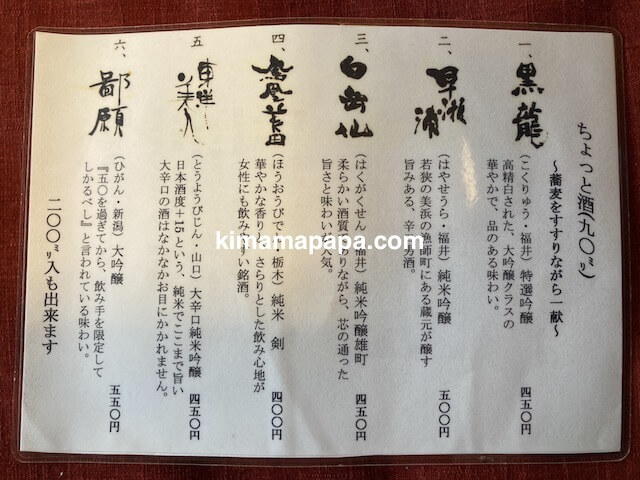 ちょっと酒(九〇㍉)
～蕎麦をすすりながら一献～
一、黒龍
(こくりゅう・福井) 特選吟醸
高精白された、大吟醸クラスの
華やかで、品のある味わい。
四五〇円
二、早瀬浦
(はやせうら・福井) 純米吟醸
若狭の美浜の漁師町にある蔵元が醸す
旨みある、辛
男酒。
五〇〇円
三、白岳仙
(はくがくせん
福井) 純米吟醸雄町
柔らかい酒質
りながら、芯の通った
旨さと味わいが人気。
四五〇円
四、鳳凰美田
(ほうおうびで
栃木) 純米 剣
華やかな香り
さらりとした飲み心地が
女性にも飲みやすい銘酒。
四〇〇円
五、東洋美人
(とうようびじん・山口) 大辛口純米吟醸
日本酒度+15という、純米でここまで旨い
大辛口の酒はなかなかお目にかかれません。
四五〇円
六、鄙願
(ひがん・新潟) 大吟醸
『五〇を過ぎてから、飲み手を限定して
しかるべし』と言われている味わい。
五五〇円
二〇〇㍉入も出来ます
kimamapapa.com